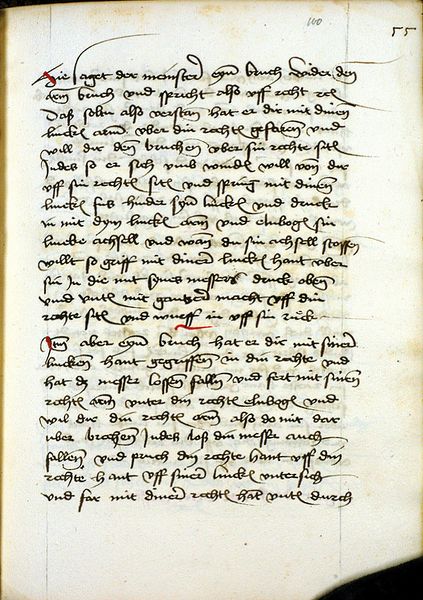 100
55
Hie saget der meinster eyn bruch wider den
arm bruch und spricht also uff recht rel
Daß soltu also verstan hat er die mit dinen
lincken arm uber din rechten gefaren und
will dir den bruchen uber sin rechte sitt
Indes so er sich umb winden will von dir
uff sin rechten sitt und spring mit dinen
lincken fus hinder syn lincken und druck
in mit dym lincken arm und elnbogen sin
lincke achsell und wan du sin achsell stossen
willt so griff mit diner lincken hant uber
sin In die mit synes messers druck oben
und unten mit gantzer macht uff din
rechte sitt und wurff in uff sin ruck
Itm aber eyn bruch hat er dir mit siner
lincken hant gegriffen in din rechte und
hat dz messer lossen fallen und fert mit sinem
rechten arm unter din rechten elnbogen und
wil dir din rechten arm also do mit dar
uber brechen Indes loß din messer auch
fallen und pruch din rechte hant uff din
rechte hant uff siner lincken untersich
und far mit diner rechten hal unten durch